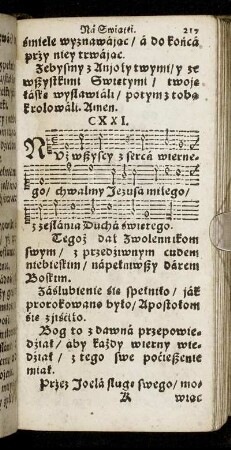 Ná Swiątki. 217
śmiele wyznawájąc / á do końcá
przy niey trwájąc.
Zebysmy z Anjoły twymi / y ze
wszystkimi Swiętymi / twoję
łáskę wysławiáli / potym z tobą
krolowáli. Amen.
CXXI.
NUż wszyscy z sercá wierne-
go / chwalmy Jezusá miłego /
z zesłánia Duchá świętego.
Tegoż dał Zwolennikom
swym / z przedziwnym cudem
niebieskim / nápełniwszy dárem
Boskim.
Záślubienie się spełniło / ják
prorokowano było / Apostołom
się zjiściło.
Bog to z dawná przepowie-
dział / áby káżdy wierny wie-
dział / z tego swe pocieszenie
miał.
Przez Joelá sługę swego / mo-
K wiąc